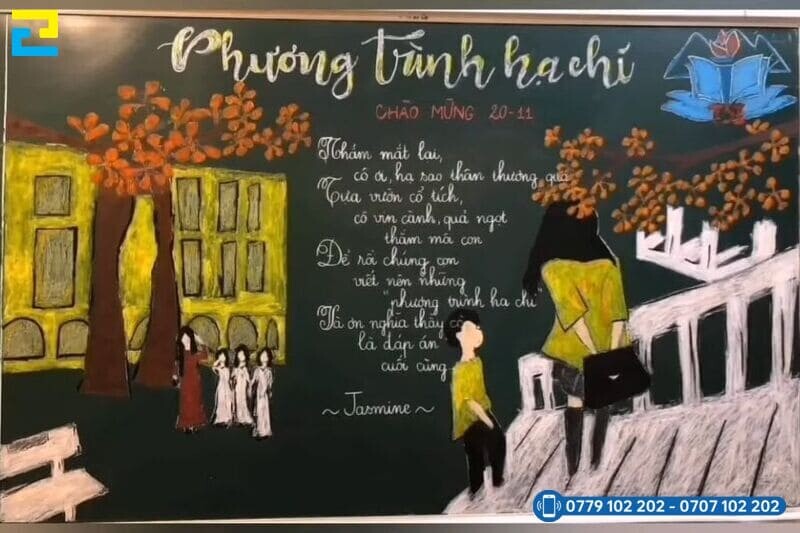 Phương trình hạ chí
CHÀO MỪNG 20-11
Nhắm mắt lại,
cô ơi, hạ sao thân thương quá
Tựa vườn cổ tích,
cô vin cành, quả ngọt
thắm mà con
Để rồi chúng con
viết nên những
"phương trình hạ chí"
Và ơn nghĩa thầy cô
là đáp án
cuối cùng
~ Jasmine ~
0779 102 202 - 0707 102 202